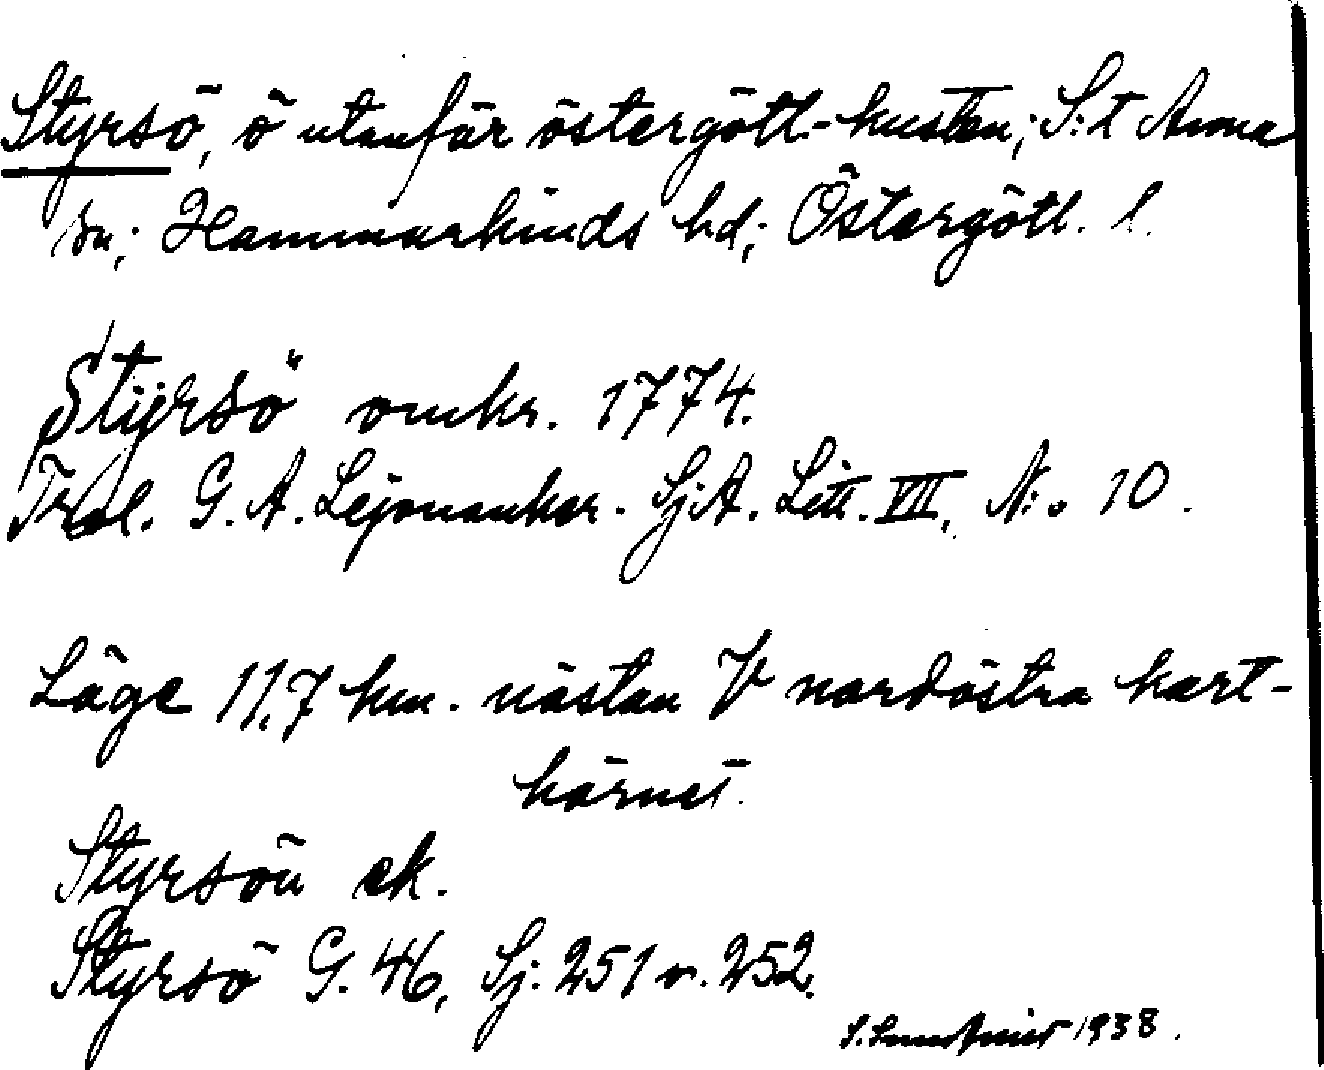 Styrsö, ö utanför östergötl.-kusten; S:t Anna
sn; Hammarkinds hd; Östergötl. l.
Stÿrsö omkr. 1774.
Trol. G. A. Lejonankar. Sj.A. Litt. VII, N:o 10.
Läge 11,7 km. nästan V nordöstra kart-
hörnet.
Styrsön ek.
Styrsö G. 46, Sj. 251 o. 252.
1938.